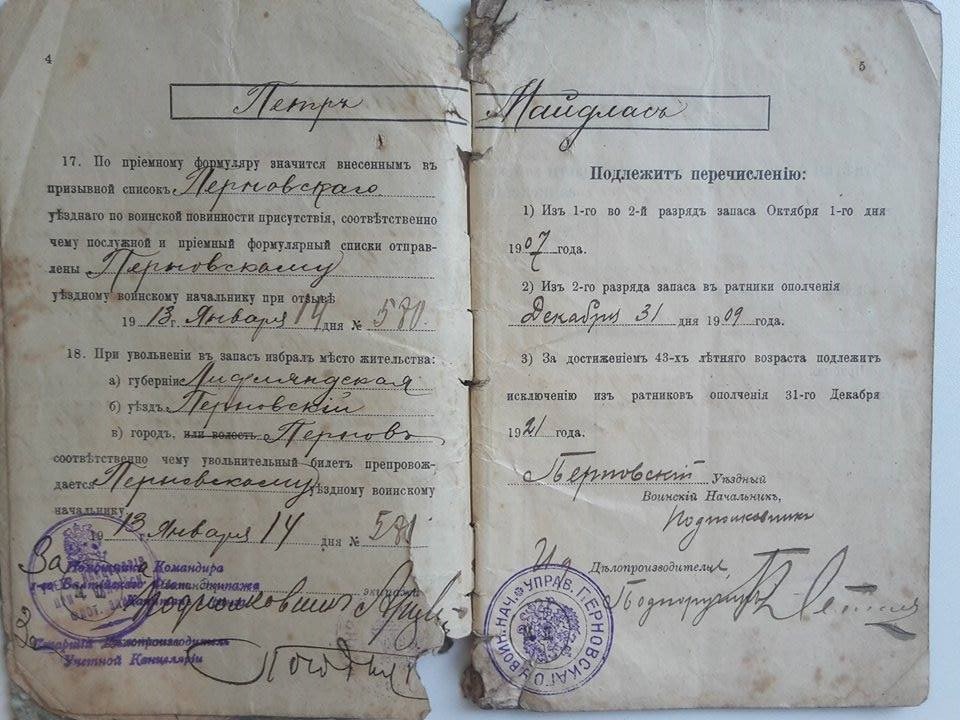 4
Петръ
17. По пріемному формуляру значится внесеннымъ въ
призывной списокъ Перновскаго
уѣзднаго по воинской повинности присутствія, соотвѣтственно
чему послужной и пріемный формулярный списки отправ-
лены Перновскому
уѣздному воинскому начальнику при отзывѣ
1913 г. Января 14 дня № 570.
18. При увольненіи въ запасъ избралъ мѣсто жительства:
а) губернію Лифляндская
б) уѣздъ Перновскій
в) городъ, или волость Перновъ
соотвѣтственно чему увольнительный билетъ препровож-
дается Перновскому уѣздному воинскому
начальнику
1913 г. Января 14 дня № 571
За
Помощника Командира
1-го Балтійскаго Флотскаго экипажа
экипажа
Подполковникъ
Старшій Дѣлопроизводитель
Учетной Канцеляріи
5
Майдласъ
Подлежитъ перечисленію:
1) Изъ 1-го во 2-й разрядъ запаса Октября 1-го дня
1907 года.
2) Изъ 2-го разряда запаса въ ратники ополченія
Декабря 31 дня 1909 года.
3) За достиженіемъ 43-хъ лѣтняго возраста подлежитъ
исключенію изъ ратниковъ ополченія 31-го Декабря
1921 года.
Перновскій Уѣздный
Воинскій Начальникъ,
Подполковникъ
И д Дѣлопроизводителя,
Подпоручикъ
УПРАВ. ПЕРНОВСКАГО У. ВОИН. НАЧ.